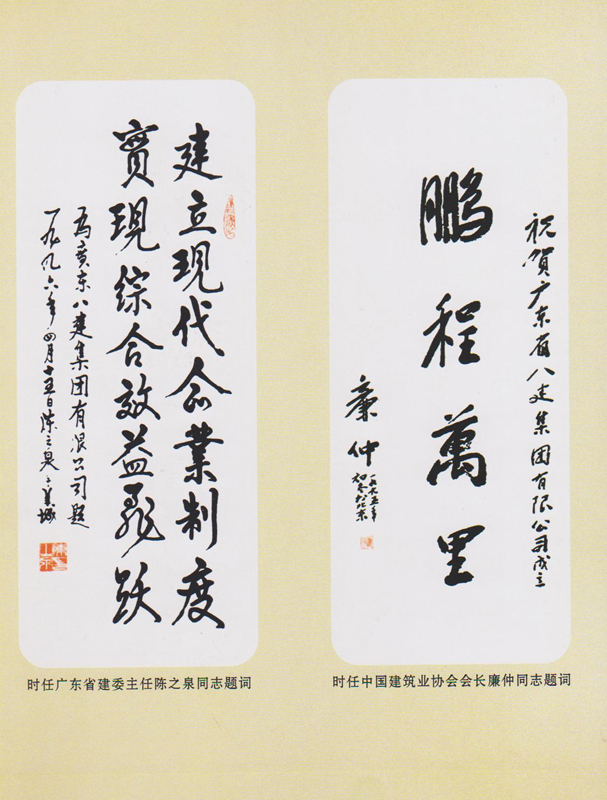 祝贺广东省八建集团有限公司成立
鹏程萬里
廉仲
一九九五年
建立現代企業制度
實現综合效益飛跃
為广东八建集团有限公司题
一九九六年四月十五日陈之泉
时任广东省建委主任陈之泉同志题词
时任中国建筑业协会会长廉仲同志题词